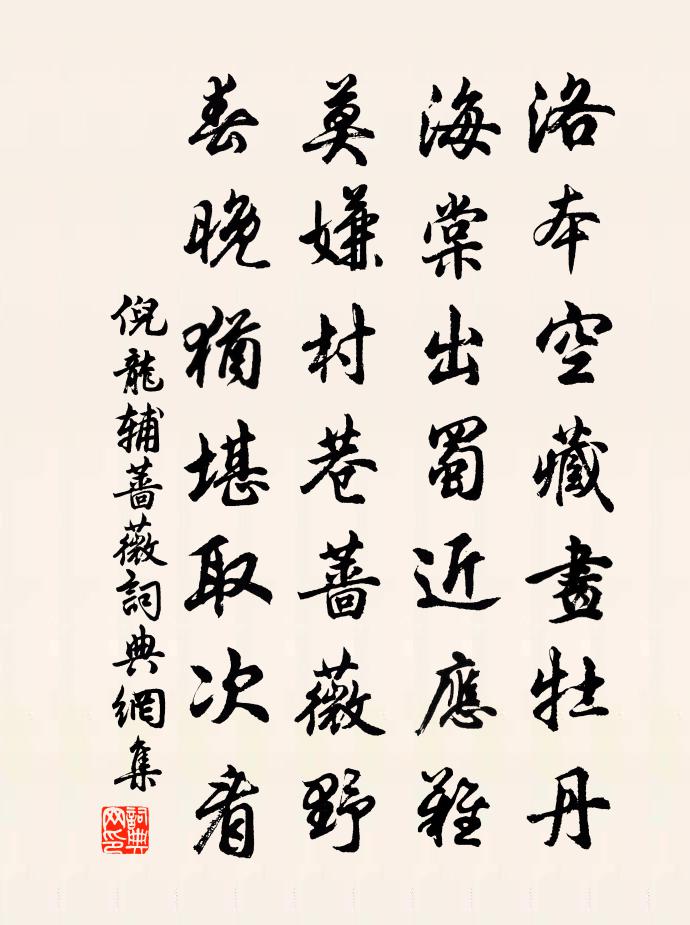 洛本空藏畫牡丹
海棠出蜀近應難
莫嫌村巷薔薇野
春晚猶堪取次看
倪龍辅薔薇詞典網集
詞典网印